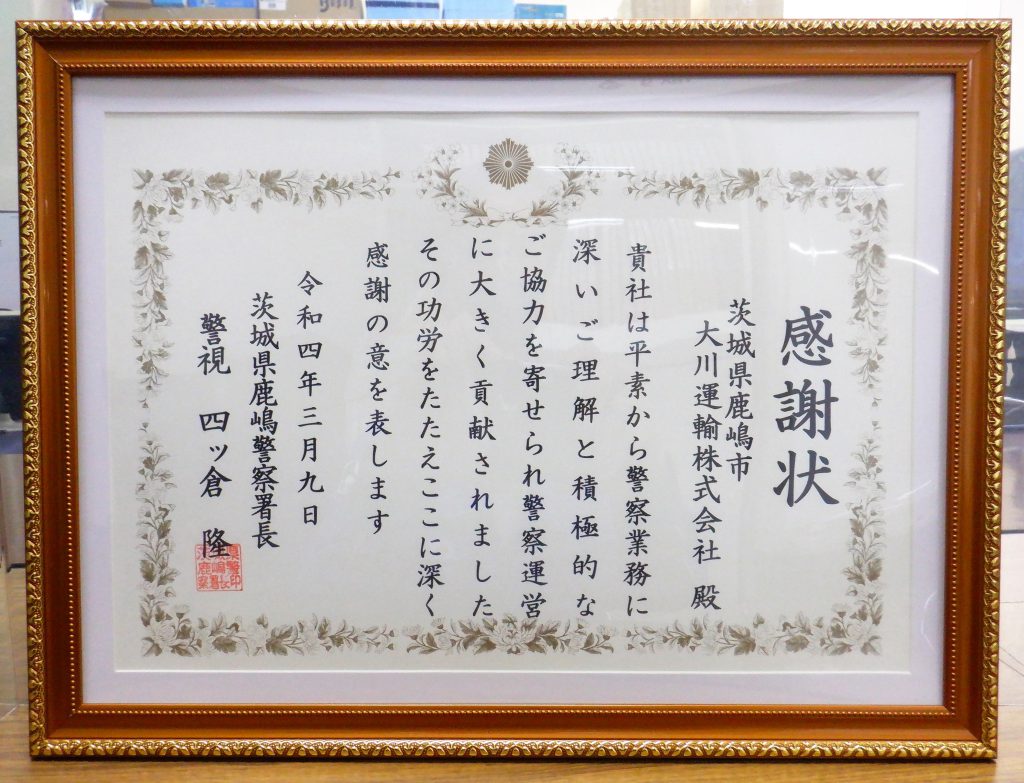 感謝状
茨城県鹿嶋市
大川運輸株式会社 殿
貴社は平素から警察業務に
深いご理解と積極的な
ご協力を寄せられ警察運営
に大きく貢献されました
その功労をたたえここに深く
感謝の意を表します
令和四年三月九日
茨城県鹿嶋警察署長
警視 四ッ倉 隆